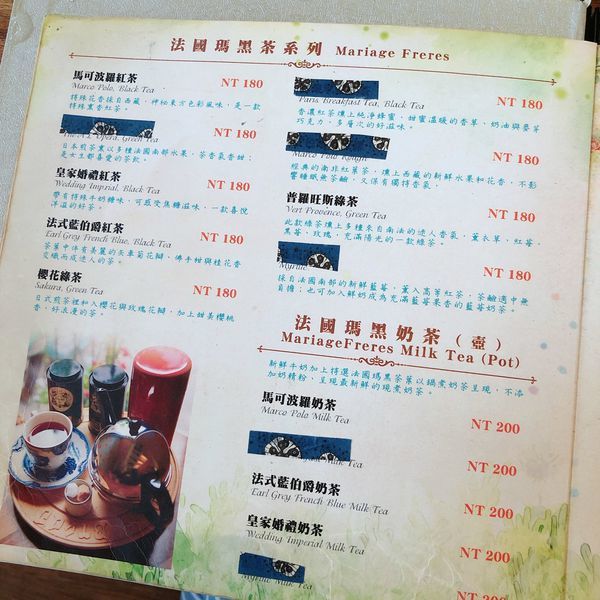 法國瑪黑茶系列 Mariage Freres
馬可波羅紅茶
Marco Polo, Black Tea
NT 180
特殊花香採自西藏，神秘東方色彩風味，是一款
特殊薰香紅茶。
Opera, Green Tea
NT 180
日本煎茶薰以多種法國南部水果，茶香氣香甜，
是大主都喜愛的茶飲。
皇家婚禮紅茶
Wedding Imprial, Black Tea
NT 180
帶有特殊牛奶糖味，可感受焦糖滋味，一款喜悅
洋溢的好茶。
法式藍伯爵紅茶
Earl Grey French Blue, Black Tea
NT 180
茶葉中伴有美麗的矢車菊花瓣、佛手柑與桂花香
交織而成迷人的茶。
櫻花綠茶
Sakura, Green Tea
NT 180
日式煎茶裡和入櫻花與玫瑰花瓣，加上甜美櫻桃
香，好浪漫的茶。
Paris Breakfast Tea, Black Tea
NT 180
香濃紅茶燻上純淨蜂蜜，甜蜜溫暖的香草、奶油與麥芽
巧克力，多層次的好滋味。
Marco Polo Rough
NT 180
經典的南非紅葉茶，燻上西藏的新鮮水果和花香，不影
響睡眠無茶鹼，又保有獨特香氣。
普羅旺斯綠茶
Vert Provence, Green Tea
NT 180
此款綠茶燻上多種來自南法的迷人香氣，薰衣草，紅莓，
黑莓，玫瑰，充滿陽光的一款綠茶。
Myrtille
NT 180
採自法國南部的新鮮藍莓，薰入高等紅茶，茶鹼適中無
負擔；也可加入鮮奶成為充滿藍莓果香的藍莓奶茶。
法國瑪黑奶茶（壺）
MariageFreres Milk Tea (Pot)
新鮮牛奶加上特選法國瑪黑茶葉以鍋煮奶茶呈現，不添
加奶精粉，呈現最新鮮的現煮奶茶。
馬可波羅奶茶
Marco Polo Milk Tea
NT 200
Milk Tea
NT 200
法式藍伯爵奶茶
Earl Grey French Blue Milk Tea
NT 200
皇家婚禮奶茶
Wedding Imperial Milk Tea
NT 200
Myrtille Milk Tea
NT 200